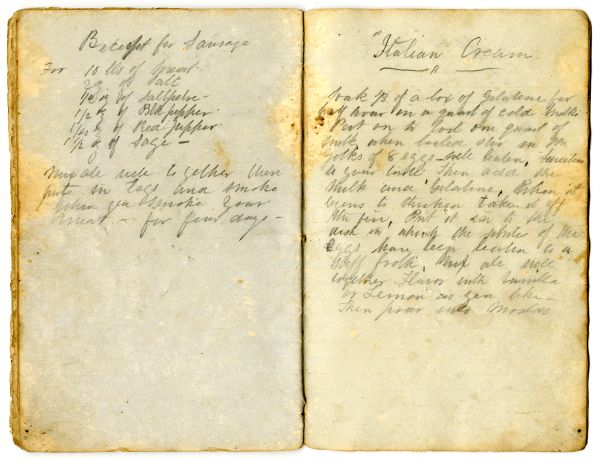 Receipt for Sausage
For 10 lbs of Meat
oz of Salt
1/4 oz of Saltpetre
1/2 oz of Blk pepper
1/4 oz of Red pepper
1 1/2 oz of Sage —
Mix all well together then
put in bags and smoke
when you smoke your
Meat — for five days —
"Italian Cream
Soak of a box of Gelatine for
half hour in a quart of cold Milk
Put on to boil one quart of
Milk when boiled stir in the
yolks of 8 eggs well beaten, Sweeten
to your taste Then add the
Milk and Gelatine, When it
begins to thicken take it off
the fire, Put it in to the
dish in which the whites of the
Eggs have been beaten to a
Stiff froth, Mix all well
together Flavor with Vanilla
or Lemon as you like —
Then pour into Moulds